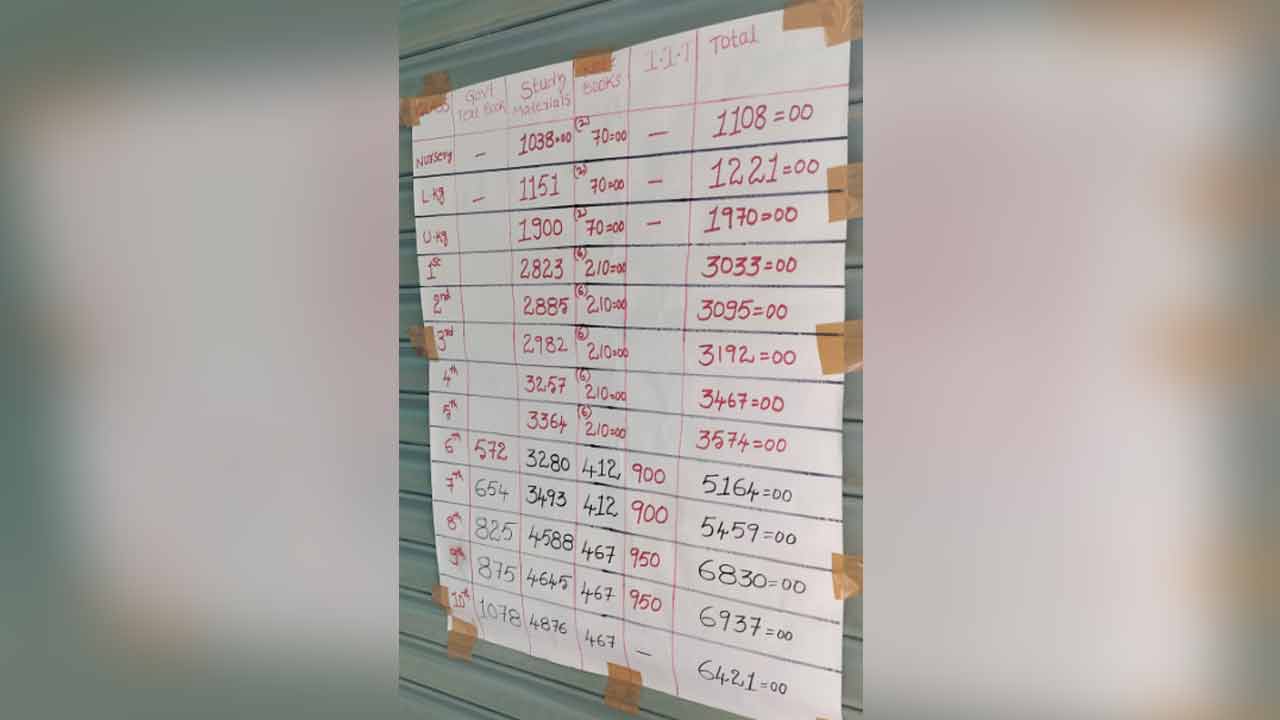 Class Govt Text Book Study Materials BOOKS I.I.T Total
Nursery — 1038=00 (2) 70=00 — 1108=00
L.kg — 1151 (2) 70=00 — 1221=00
U.kg 1900 (2) 70=00 — 1970=00
1st 2823 (6) 210=00 3033=00
2nd 2885 (6) 210=00 3095=00
3rd 2982 (6) 210=00 3192=00
4th 3257 (6) 210=00 3467=00
5th 3364 (6) 210=00 3574=00
6th 572 3280 412 900 5164=00
7th 654 3493 412 900 5459=00
8th 825 4588 467 950 6830=00
9th 875 4645 467 950 6937=00
10th 1078 4876 467 — 6421=00